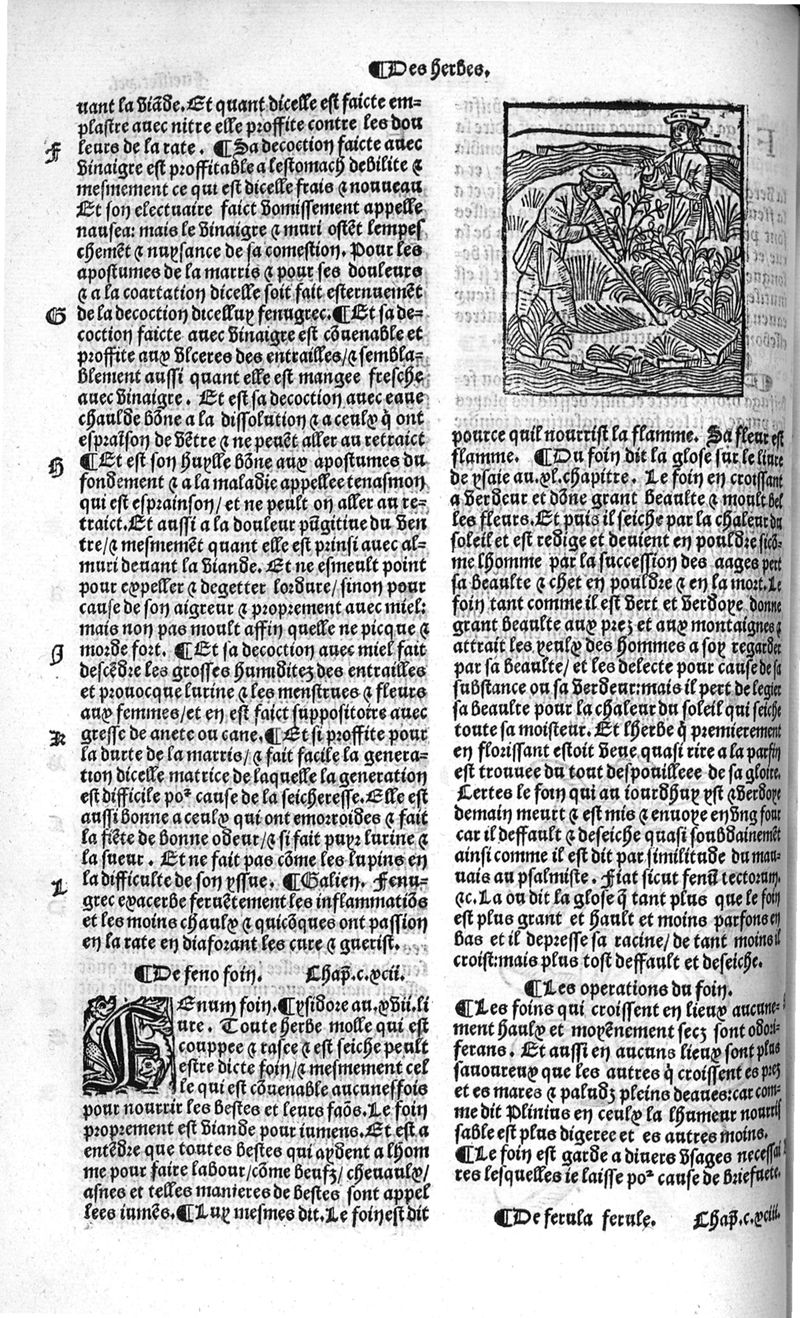 ¶Des herbes.
uant la viãde. Et quant dicelle est faicte em-
plastre auec nitre elle proffite contre les dou
F
leurs de la rate. ¶Sa decoction faicte auec
vinaigre est proffitable a lestomach debilite ⁊
mesmement ce qui est dicelle frais ⁊ nouueau
Et son electuaire faict vomissement appelle
nausea: mais le vinaigre ⁊ muri ostẽt lempes
chemẽt ⁊ nuysance de sa comestion. Pour les
apostumes de la marris ⁊ pour ses douleurs
⁊ a la coartation dicelle soit fait esternuemẽt
G
de la decoction dicelluy fenugrec. ¶Et sa de-
coction faicte auec vinaigre est cõuenable et
proffite aux vlceres des entrailles/⁊ sembla-
blement aussi quant elle est mangee fresche
auec vinaigre. Et est sa decoction auec eaue
chaulde bõne a la dissolution ⁊ a ceulx q̃ ont
espraĩson de vẽtre ⁊ ne peuẽt aller au retraict
H
¶Et est son huylle bõne aux apostumes du
fondement ⁊ a la maladie appellee tenasmon
qui est esprainson/et ne peult on aller au re-
traict. Et aussi a la douleur pũgitiue du ven
tre/⁊ mesmemẽt quant elle est prinsi auec al-
muri deuant la viande. Et ne esmeult point
pour expeller ⁊ degetter lordure/sinon pour
cause de son aigreur ⁊ proprement auec miel:
mais non pas moult affin quelle ne picque ⁊
I
morde fort. ¶Et sa decoction auec miel fait
descẽdre les grosses humiditez des entrailles
et prouocque lurine ⁊ les menstrues ⁊ fleurs
aux femmes/et en est faict suppositoire auec
K
gresse de anete ou cane. ¶Et si proffite pour
la durte de la marris/⁊ fait facile la genera-
tion dicelle matrice de laquelle la generation
est difficile poꝛ cause de la seicheresse. Elle est
aussi bonne a ceulx qui ont emorroides ⁊ fait
la fiẽte de bonne odeur/⁊ si fait puyr lurine ⁊
la sueur. Et ne fait pas cõme les lupins en
L
la difficulte de son yssue. ¶Galien. Fenu-
grec exacerbe feruẽtement les inflammatiõs
et les moins chaulx ⁊ quicõques ont passion
en la rate en diaforant les cure ⁊ guerist.
¶De feno foin. Chap̃. c.xcii.
FEnum foin. ¶Ysidore au .xvii. li
ure. Toute herbe molle qui est
couppee ⁊ rasee ⁊ est seiche peult
estre dicte foin/⁊ mesmement cel
le qui est cõuenable aucuneffois
pour nourrir les bestes et leurs faõs. Le foin
proprement est viande pour iumens. Et est a
entẽdre que toutes bestes qui aydent a lhom
me pour faire labour/cõme beufz/cheuaulx/
asnes et telles manieres de bestes sont appel
lees iumẽs. ¶Luy mesmes dit. Le foin est dit
pource quil nourrist la flamme. Sa fleur est
flamme. ¶Du foin dit la glose sur le liure
de ysaie au .xl. chapitre. Le foin en croissant
a verdeur et dõne grant beaulte ⁊ moult bel
les fleurs. Et puis il seiche par la chaleur du
soleil et est redige et deuient en pouldre sicõ-
me lhomme par la succession des aages pert
sa beaulte ⁊ chet en pouldre ⁊ en la mort. Le
foin tant comme il est vert et verdoye donne
grant beaulte aux prez et aux montaignes ⁊
attrait les yeulx des hommes a soy regarder
par sa beaulte/et les delecte pour cause de sa
substance ou sa verdeur: mais il pert de legier
sa beaulte pour la chaleur du soleil qui seiche
toute sa moisteur. Et lherbe q̃ premierement
en florissant estoit veue quasi rire a la parfin
est trouuee du tout despouilleee de sa gloire.
Certes le foin qui au iourdhuy yst ⁊ verdoye
demain meurt ⁊ est mis ⁊ enuoye en vng four
car il deffault ⁊ deseiche quasi soubdainemẽt
ainsi comme il est dit par similitude du mau-
uais au psalmiste. Fiat sicut fenũ tectorum.
⁊c. La ou dit la glose q̃ tant plus que le foin
est plus grant et hault et moins parfons en
bas et il depresse sa racine/de tant moins il
croist: mais plus tost deffault et deseiche.
¶Les operations du foin.
¶Les foins qui croissent en lieux aucune-
ment haulx et moyẽnement secz sont odori-
ferans. Et aussi en aucuns lieux sont plus
sauoureux que les autres q̃ croissent es prez
et es mares ⁊ paludz pleins deaues: car com-
me dit Plinius en ceulx la lhumeur nourris
sable est plus digeree et es autres moins.
¶Le foin est garde a diuers vsages necessai
res lesquelles ie laisse poꝛ cause de briefuete.
¶De ferula ferule. Chap̃. c.xciii.